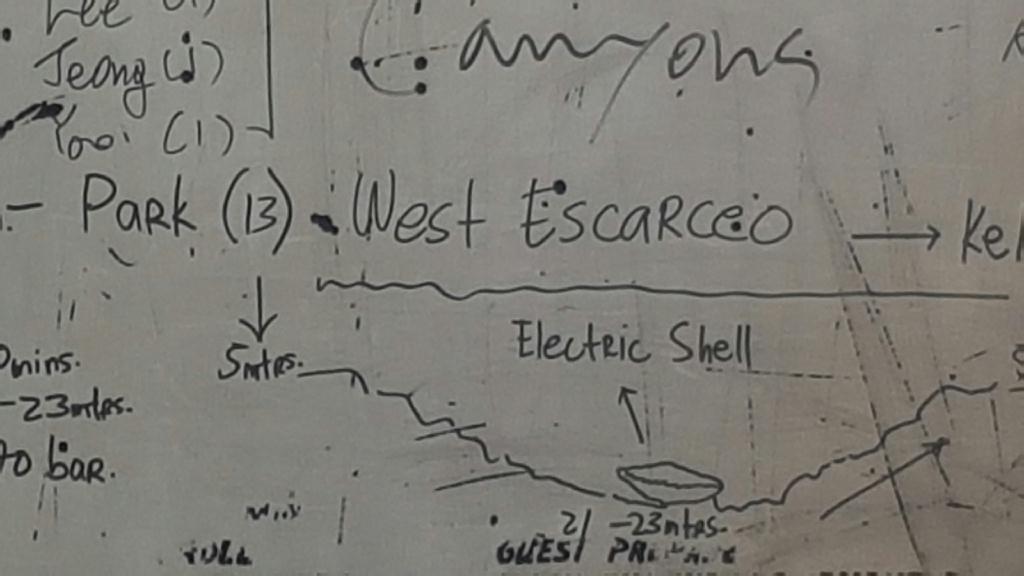 Lee
Jeong (1)
Yoo (1)
Canyons
- Park (13) West Escarceo → Kel
Electric Shell
mins. 5mtrs.
-23mtrs.
bar.
21 -23mtrs.
GUEST